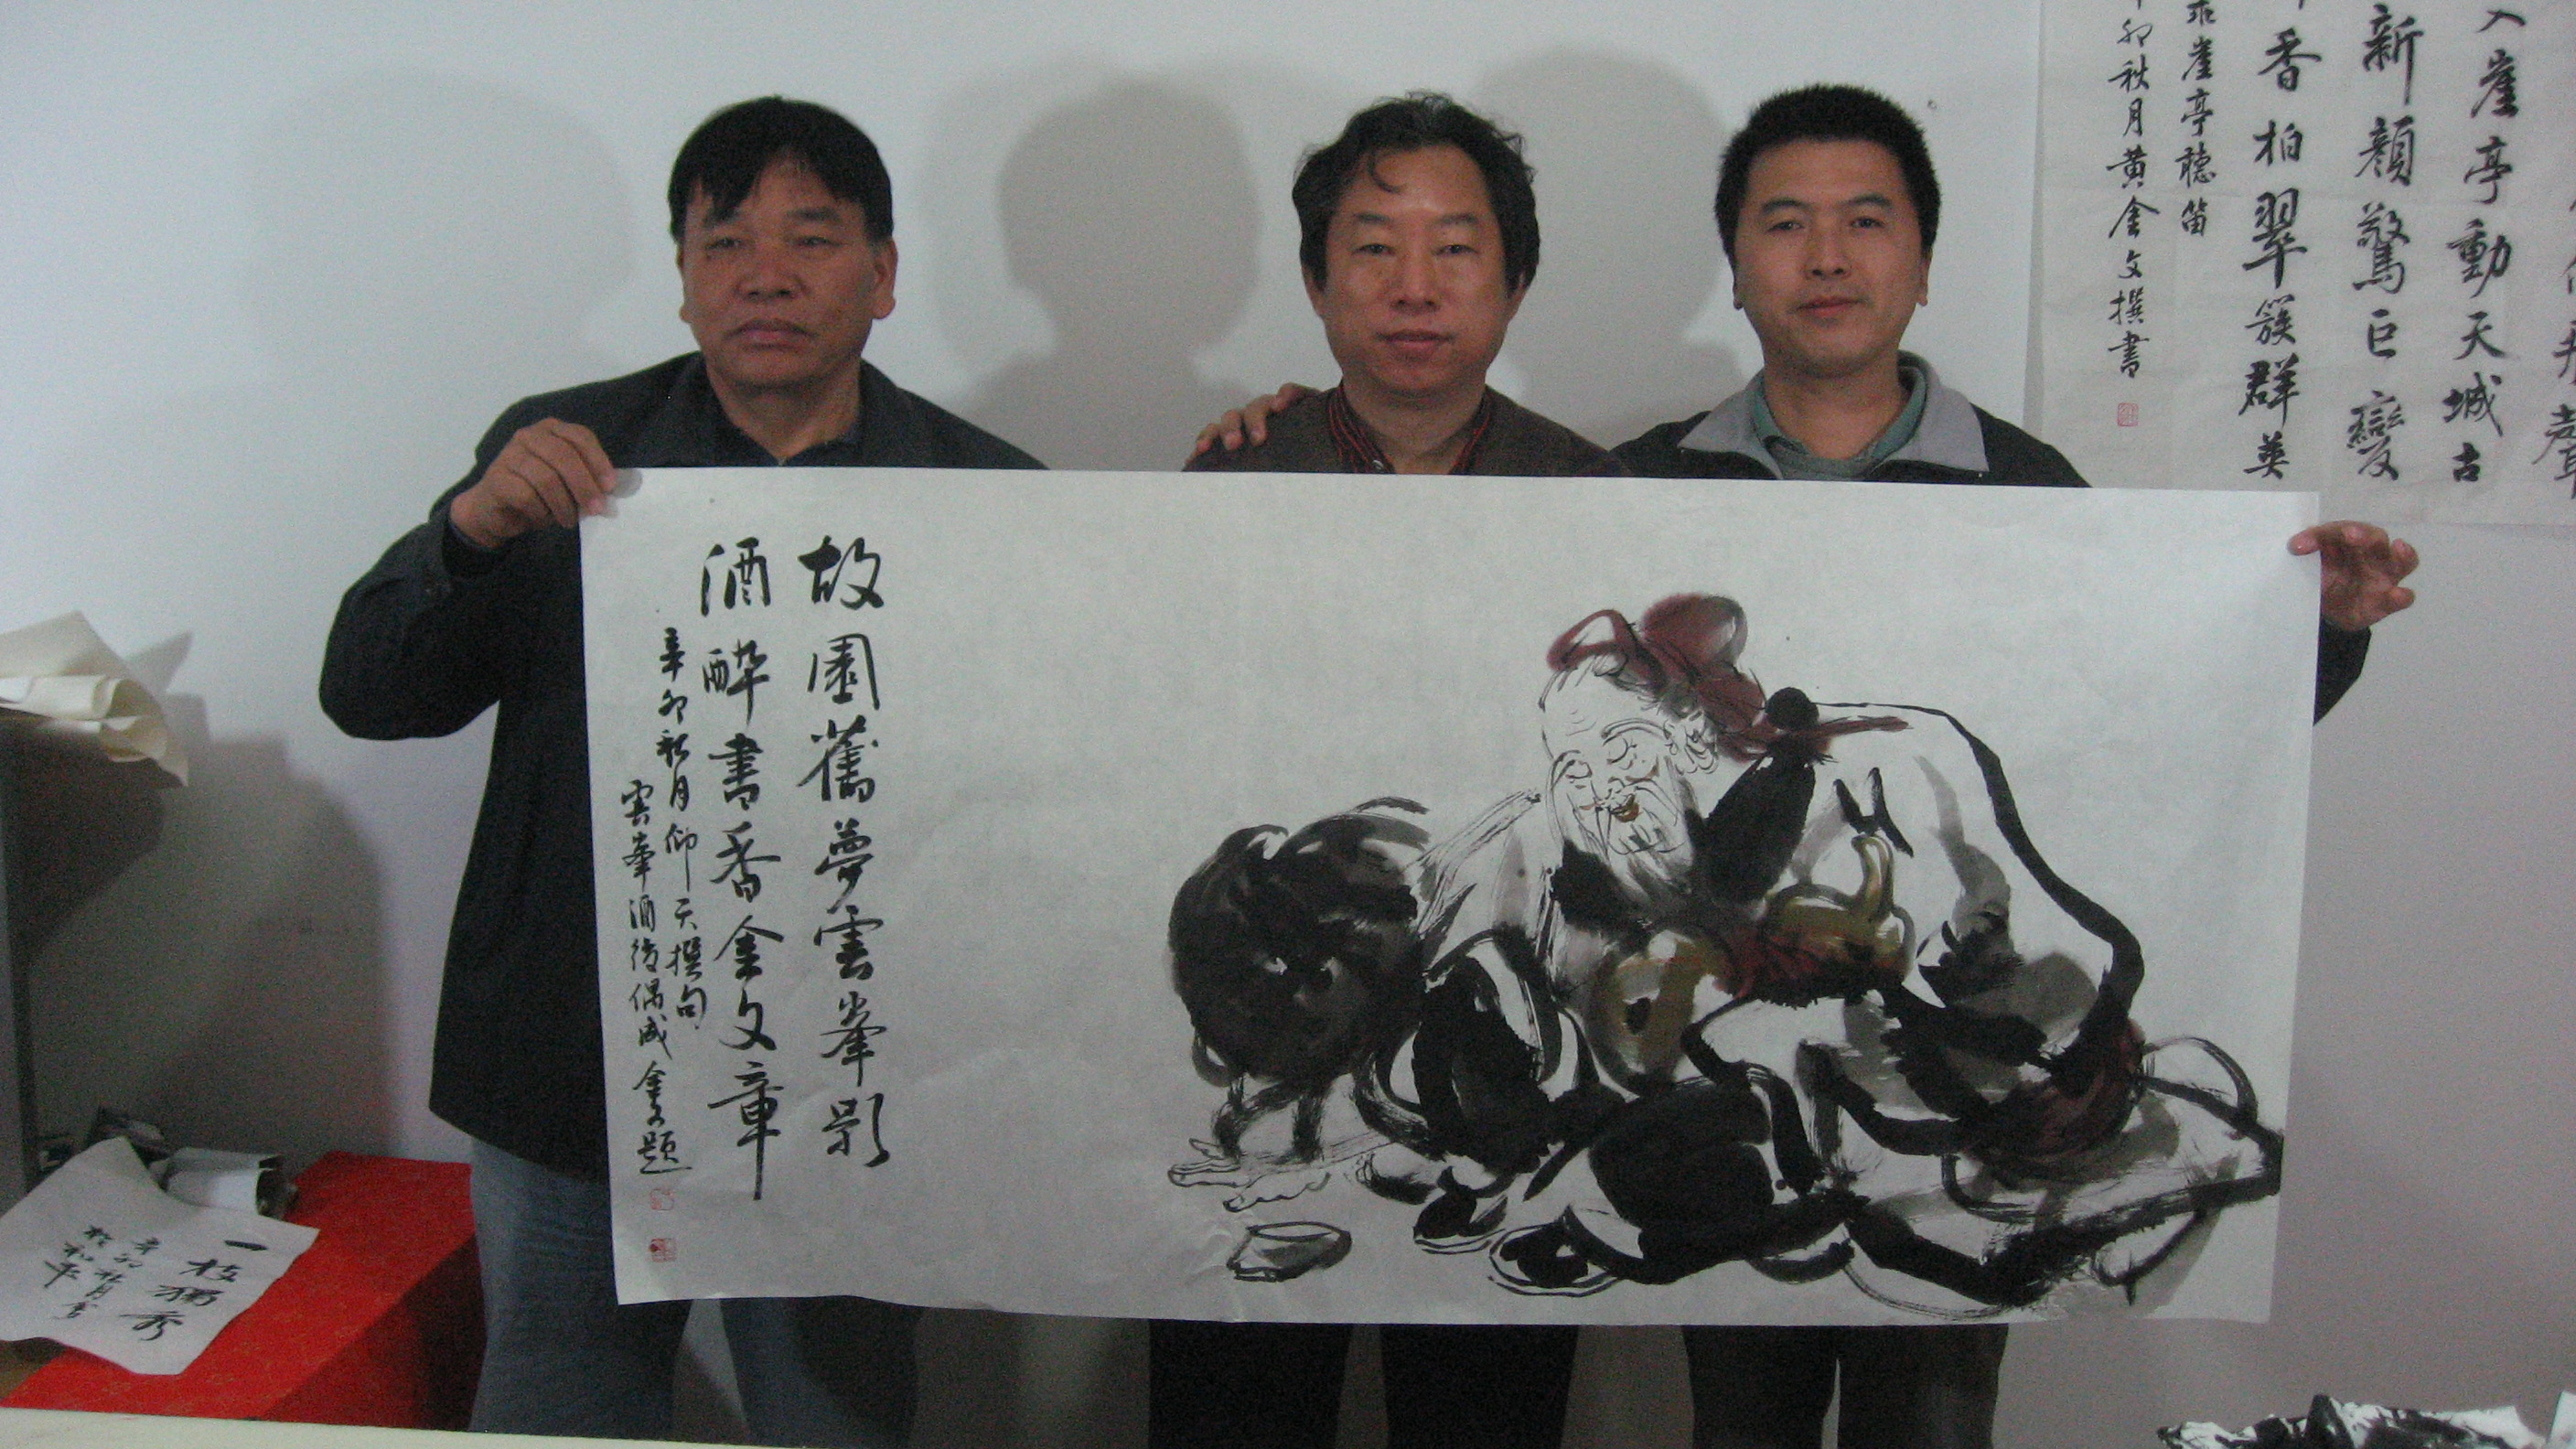 故園舊夢雲峯影
酒醉書香金文章
辛卯秋月仰天撰句
雲峯酒後偶成金文題
入崖亭動天城古
新顏驚巨變
香柏翠簇群英
乖崖亭聽笛
卯秋月黃金文撰書
一枝獨秀
辛卯秋月書
於和平